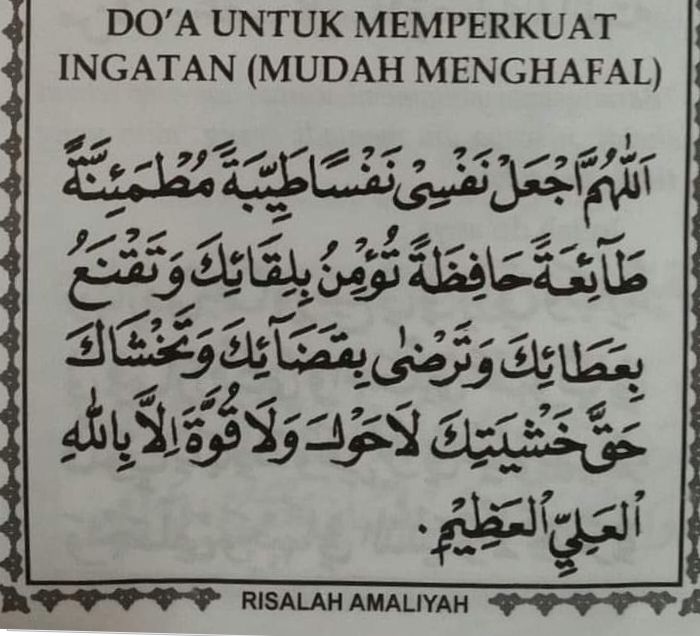 DO'A UNTUK MEMPERKUAT
INGATAN (MUDAH MENGHAFAL)
اَللّٰهُمَّ اجْعَلْ نَفْسِيْ نَفْسًا طَيِّبَةً مُطْمَئِنَّةً
طَآئِعَةً حَافِظَةً تُؤْمِنُ بِلِقَائِكَ وَتَقْنَعُ
بِعَطَائِكَ وَتَرْضٰى بِقَضَآئِكَ وَتَخْشَاكَ
حَقَّ خَشْيَتِكَ لَاحَوْلَ وَلَا قُوَّةَ اِلَّا بِاللهِ
الْعَلِيِّ الْعَظِيْمِ.
RISALAH AMALIYAH